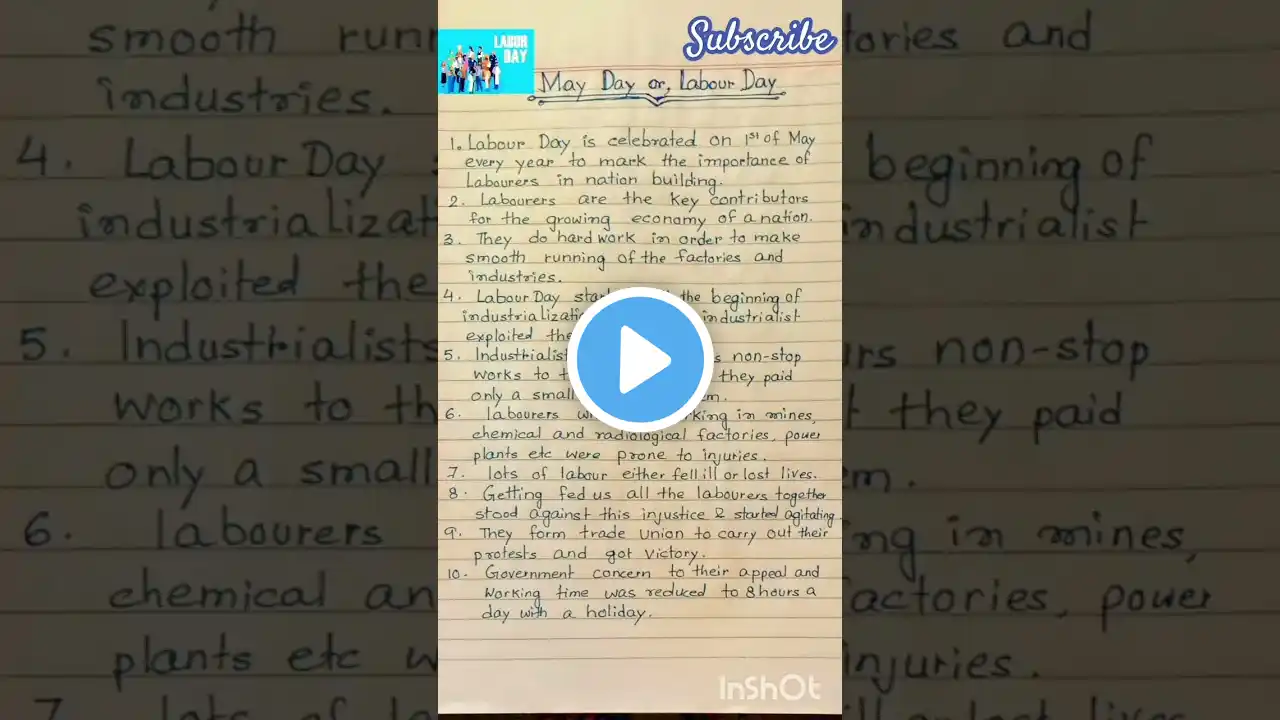 Subscribe
LABOR
DAY
May Day or, Labour Day
1. Labour Day is celebrated on 1st of May
every year to mark the importance of
Labourers in nation building.
2. Labourers are the key contributors
for the growing economy of a nation.
3. They do hard work in order to make
smooth running of the factories and
industries.
4. Labour Day the beginning of
industrialist
exploited
5. non-stop
works to they paid
only a small
6. labourers in mines,
chemical and radiological factories, power
plants etc were prone to injuries.
7. lots of labour either fell ill or lost lives.
8. Getting fed us all the labourers together
stood against this injustice & started agitating
9. They form trade union to carry out their
protests and got victory.
10. Government concern to their appeal and
working time was reduced to 8 hours a
day with a holiday.
InShOt
smooth ories and
industries.
4. Labour Day beginning of
ndustrialist
exploited the
5. Industrialists non-stop
works to they paid
only a small
6. labourers in mines,
chemical actories, power
plants etc njuries.
7.